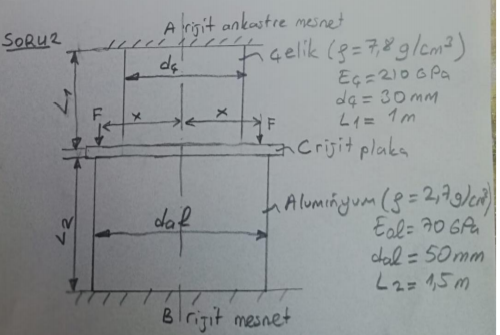 SORU2
A rijit ankastre mesnet
Çelik (ρ = 7,8 g/cm³)
EÇ = 210 GPa
dÇ = 30 mm
L1 = 1 m
dÇ
L1
F
x
x
F
C rijit plaka
L2
dal
Alüminyum (ρ = 2,7 g/cm³)
Eal = 70 GPa
dal = 50 mm
L2 = 1,5 m
B rijit mesnet